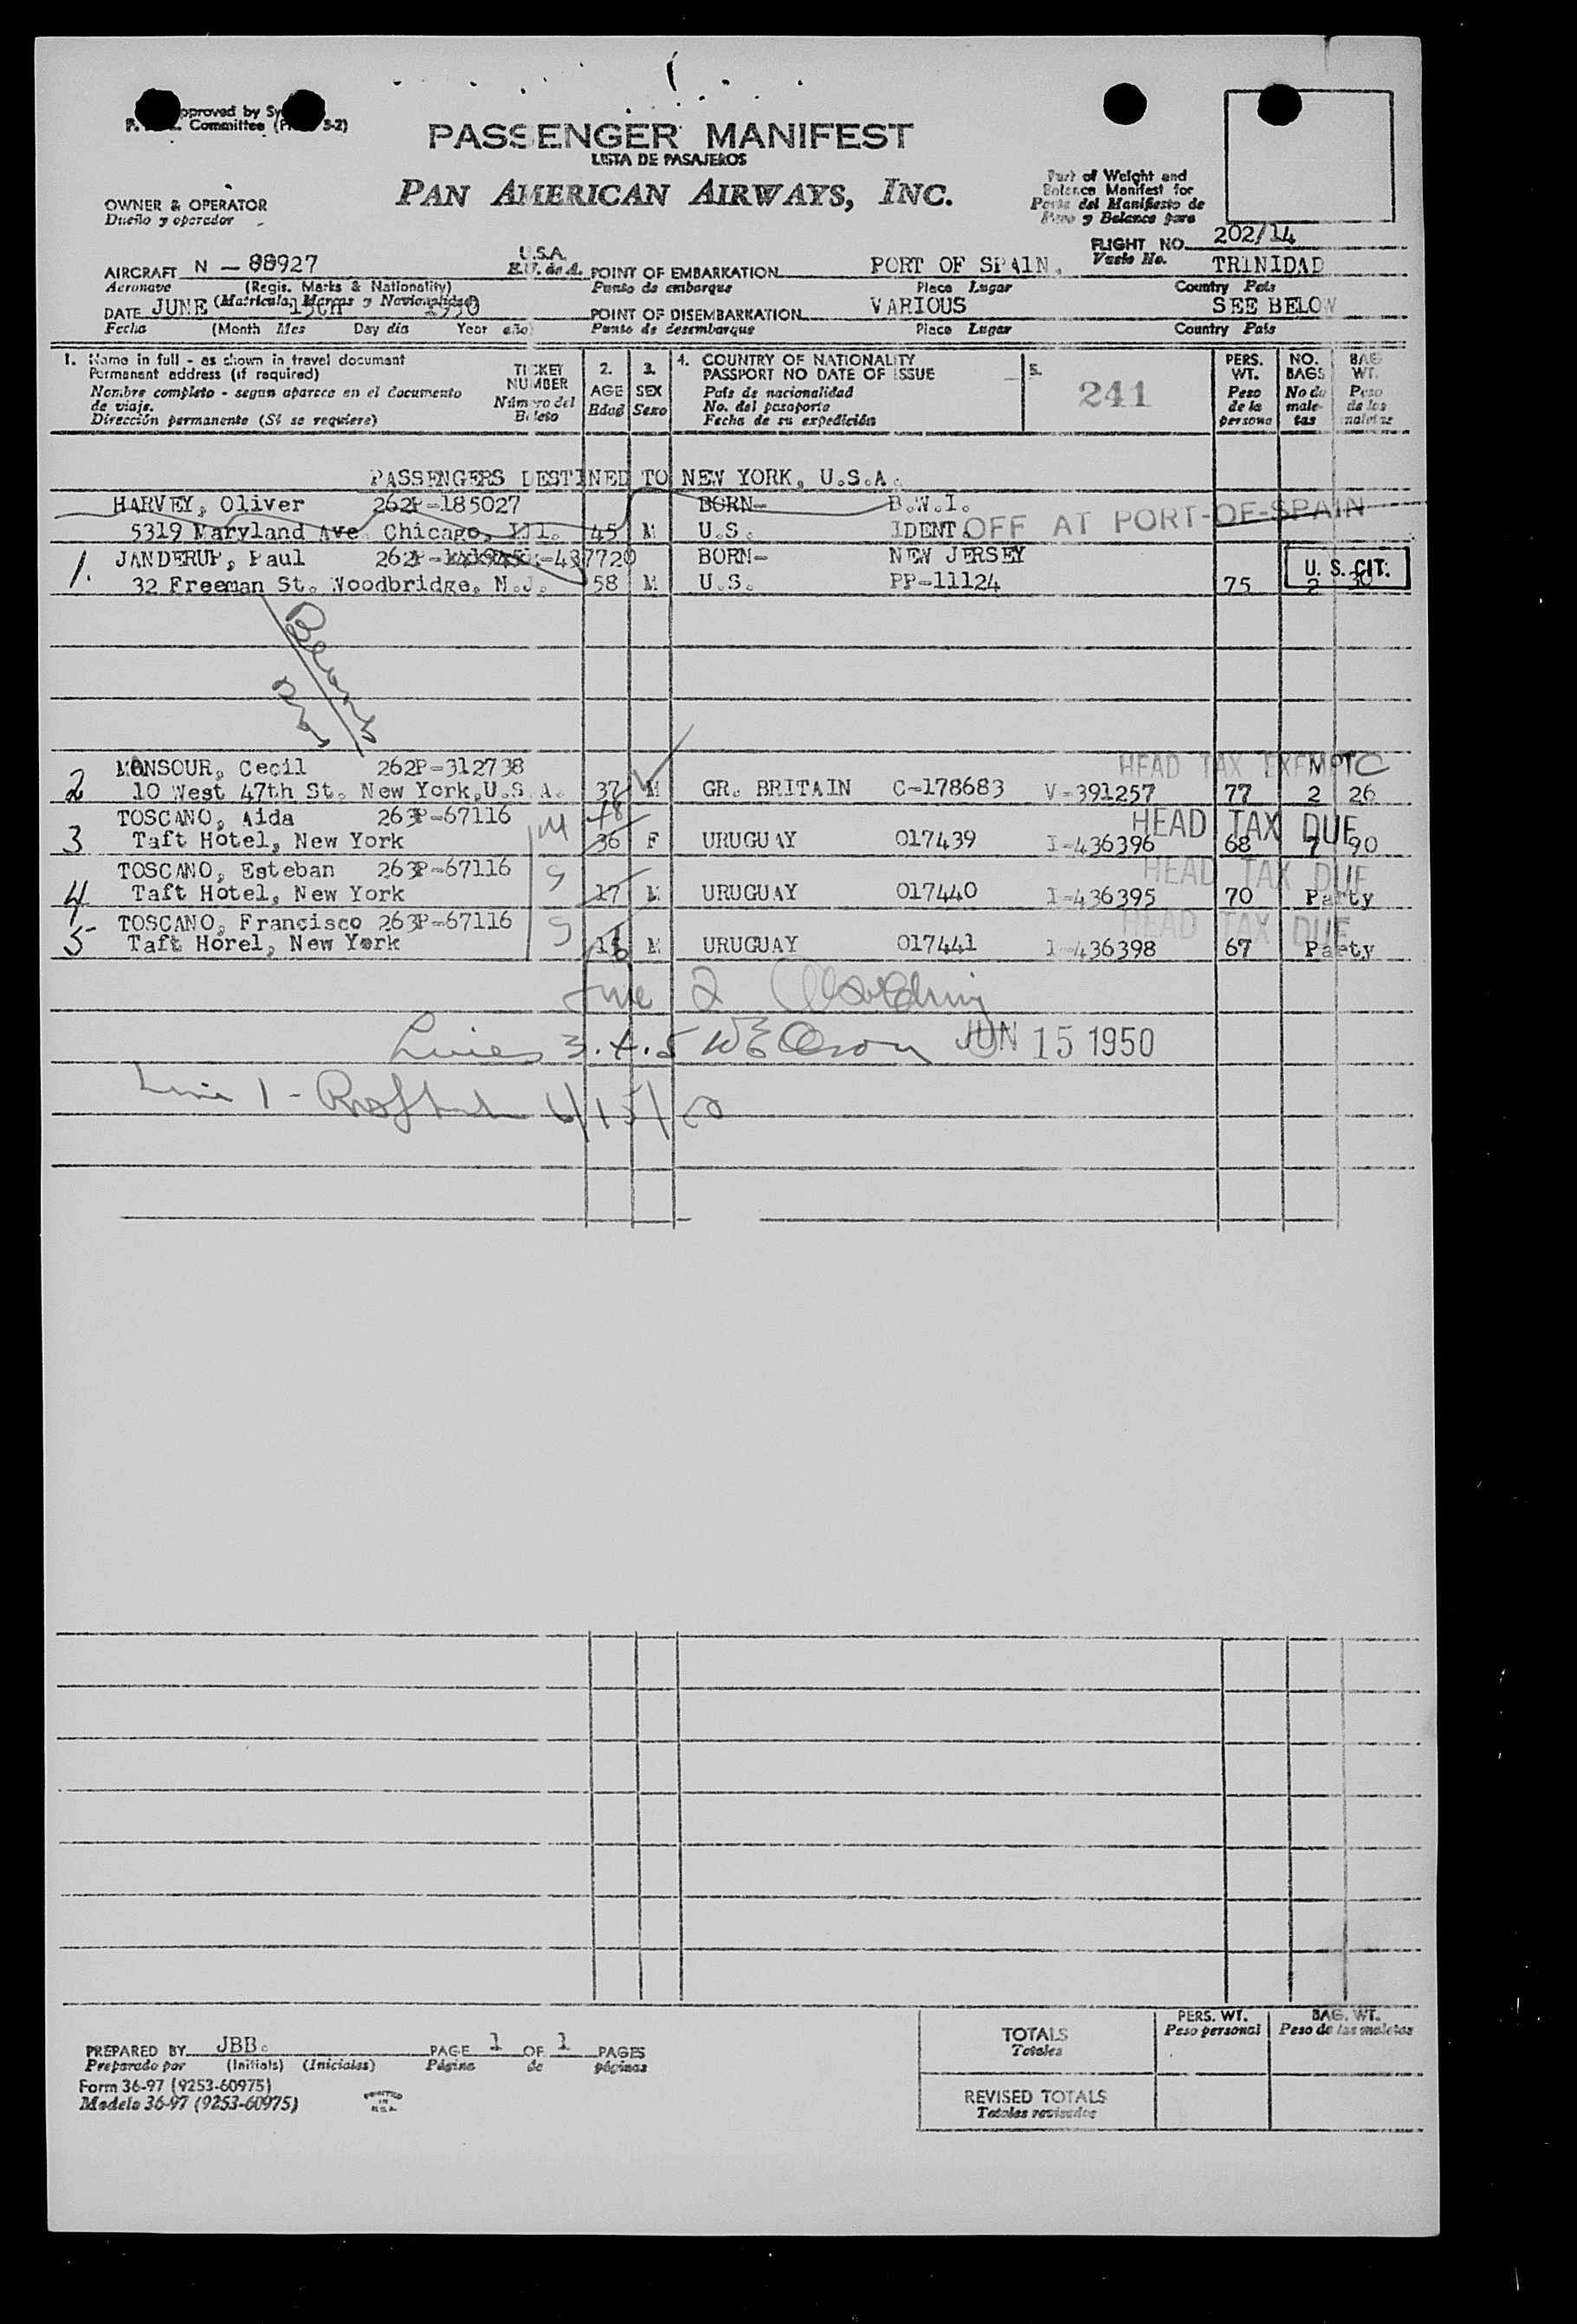 PASSENGER MANIFEST
LISTA DE PASAJEROS
PAN AMERICAN AIRWAYS, INC.
OWNER & OPERATOR
Dueño y operador
Part of Weight and
Balance Manifest for
Parte del Manifiesto de
Peso y Balance para
FLIGHT NO. 202/14
Vuelo No.
AIRCRAFT N - 88927 U.S.A. POINT OF EMBARKATION PORT OF SPAIN, TRINIDAD
Aeronave (Regis. Marks & Nationality) E.U. de A. Punto de embarque Place Lugar Country País
(Matrícula, Marcas y Nacionalidad)
DATE JUNE 15th 1950 POINT OF DISEMBARKATION VARIOUS SEE BELOW
Fecha (Month Mes Day día Year año) Punto de desembarque Place Lugar Country País
1. Name in full - as shown in travel document
Permanent address (if required)
Nombre completo - segun aparece en el documento
de viaje.
Dirección permanente (Si se requiere)
TICKET
NUMBER
Número del
Boleto
2.
AGE
Edad
3.
SEX
Sexo
4. COUNTRY OF NATIONALITY
PASSPORT NO DATE OF ISSUE
País de nacionalidad
No. del pasaporte
Fecha de su expedición
5.
241
PERS.
WT.
Peso
de la
persona
NO.
BAGS
No de
male-
tas
BAG
WT.
Peso
de las
maletas
PASSENGERS DESTINED TO NEW YORK, U.S.A.
HARVEY, Oliver 262P-185027 BORN- B.W.I.
5319 Maryland Ave. Chicago, Ill. 45 M U.S. IDENT. OFF AT PORT-OF-SPAIN
JANDERUP, Paul 262P- -437720 BORN- NEW JERSEY
1. 32 Freeman St. Woodbridge, N.J. 58 M U.S. PP-11124 75 2 30 U. S. CIT.
MANSOUR, Cecil 262P-312738 HEAD TAX EXEMPT C
2 10 West 47th St. New York, U.S.A. 37 M GR. BRITAIN C-178683 V-391257 77 2 26
TOSCANO, Aida 263P-67116 M 48 HEAD TAX DUE
3 Taft Hotel, New York 36 F URUGUAY 017439 I-436396 68 7 90
TOSCANO, Esteban 263P-67116 S HEAD TAX DUE
4 Taft Hotel, New York 17 M URUGUAY 017440 I-436395 70 Party
TOSCANO, Francisco 263P-67116 S HEAD TAX DUE
5 Taft Horel, New York 16 M URUGUAY 017441 I-436398 67 Party
Line 2
Lines 3.4.5 JUN 15 1950
Line 1 - 6/15/50
PREPARED BY JBB. PAGE 1 OF 1 PAGES
Preparado por (Initials) (Iniciales) Página de páginas
Form 36-97 (9253-60975)
Modelo 36-97 (9253-60975)
PRINTED
IN
U.S.A.
TOTALS
Totales
REVISED TOTALS
Totales revisados
PERS. WT.
Peso personal
BAG. WT.
Peso de las maletas